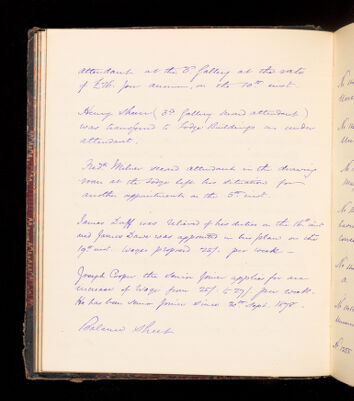 attendant at the Dº Gallery at the rate
of per annum, on the 10th inst.
Henry (3rd Gallery attendant)
was transferred to Lodge Buildings as under
attendant.
Fredk. Milner second attendant in the drawing
room at the Lodge left his situation for
another appointment on the 5th inst.
James Duff was relieved of his duties on the inst
and James was appointed in his place on the
19th inst. Wages proposed 25/- per week -
Joseph Cooper the Senior Joiner applies for an
increase of Wages from 25/- to 27/- per week.
He has been Senior Joiner since Sept. 1878.
Balance Sheet